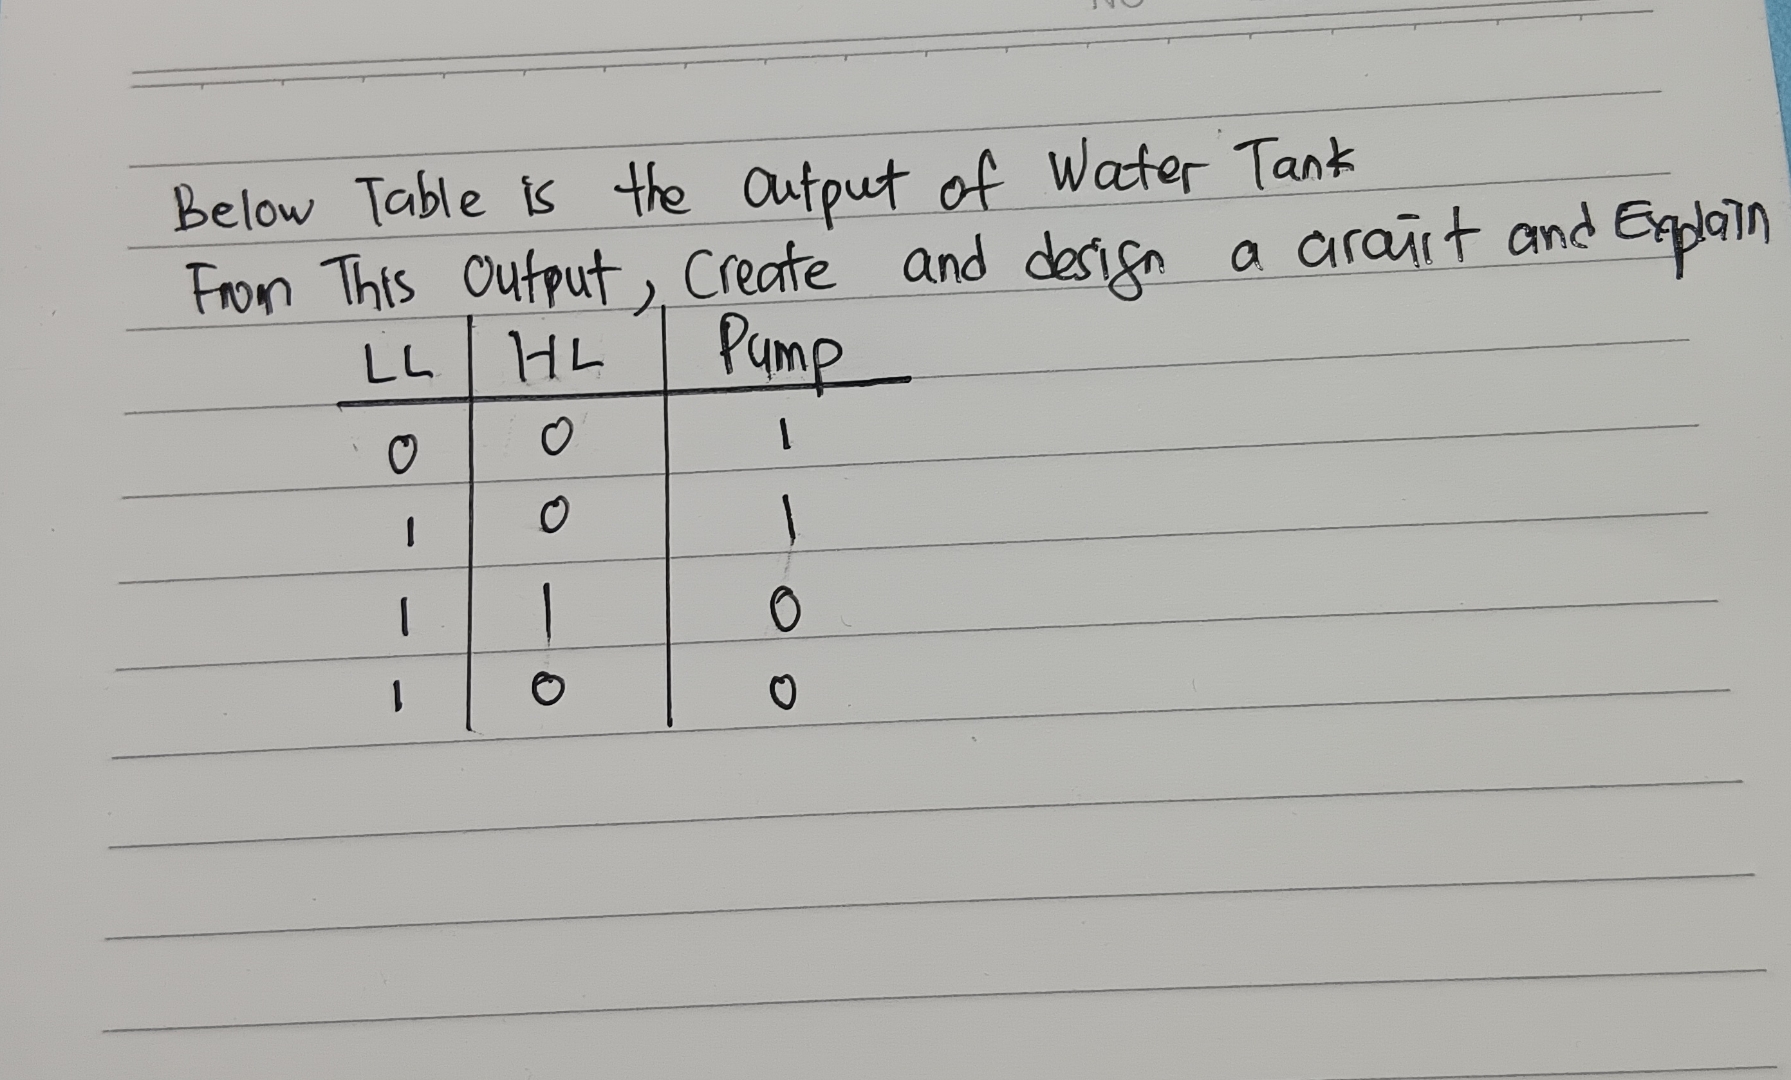 Below Table is the output of Water Tank
From This Output, Create and design a circuit and Explain
LL HL Pump
0 0 1
1 0 1
1 1 0
1 0 0